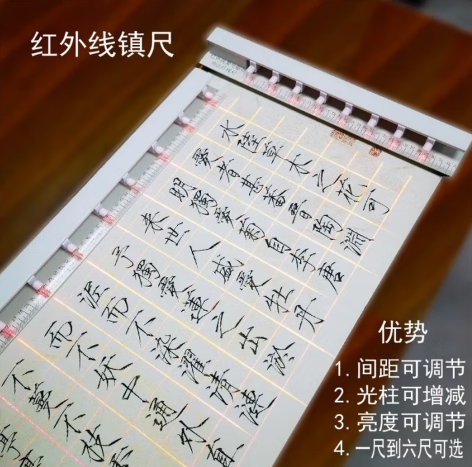 红外线镇尺
水陸草木之花可
愛者甚蕃晉陶淵
明獨愛菊自李唐
來世人盛愛牡丹
予獨愛蓮之出淤
泥而不染濯清漣
而不妖中通外直
不蔓不枝
优势
1. 间距可调节
2. 光柱可增减
3. 亮度可调节
4. 一尺到六尺可选